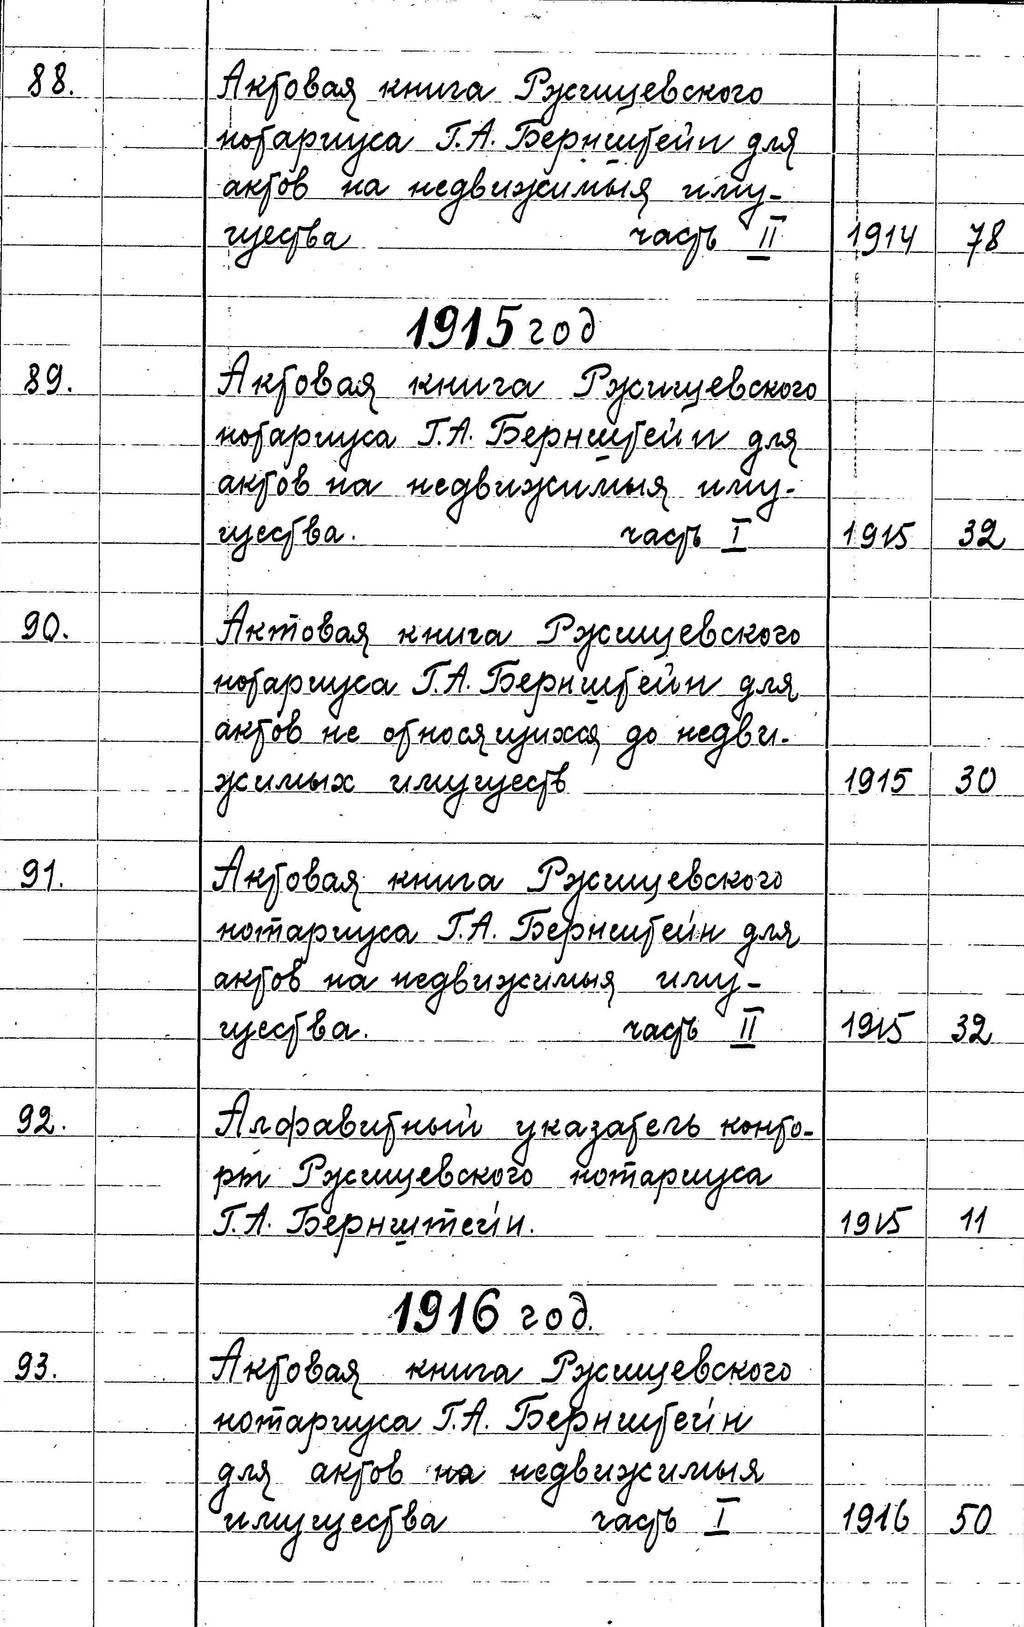 88. Актовая книга Ржищевского
нотариуса Г.А. Бернштейн для
актов на недвижимыя иму-
щества часть II 1914 78
1915 год
89. Актовая книга Ржищевского
нотариуса Г.А. Бернштейн для
актов на недвижимыя иму-
щества. часть I 1915 32
90. Актовая книга Ржищевского
нотариуса Г.А. Бернштейн для
актов не относящихся до недви-
жимых имуществ 1915 30
91. Актовая книга Ржищевского
нотариуса Г.А. Бернштейн для
актов на недвижимыя иму-
щества. часть II 1915 32
92. Алфавитный указатель конто-
ры Ржищевского нотариуса
Г.А. Бернштейн. 1915 11
1916 год.
93. Актовая книга Ржищевского
нотариуса Г.А. Бернштейн
для актов на недвижимыя
имущества часть I 1916 50